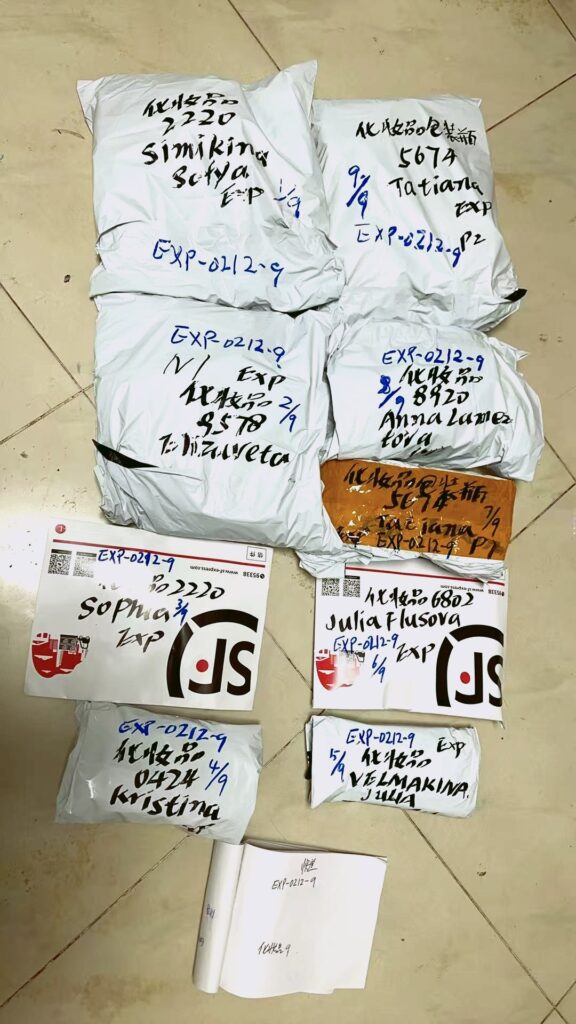 化妆品
2220
Simikina
Sofya
EXP 1/9
EXP-0212-9
化妆品包装瓶
5674
9/9 Tatiana
EXP
EXP-0212-9 P2
EXP-0212-9
N1 EXP
化妆品 2/9
9578
Elizaveta
EXP-0212-9
化妆品
8/9 8920
Anna Lamez
tova
化妆品包装瓶
5674
Tatiana 7/9
EXP-0212-9 P1
EXP-0212-9
www.sf-express.com
95338
妆品2220
Sophia 3/9
EXP
SF
www.sf-express.com
95338
化妆品6802
Julia Flusova
EXP-0212-9 EXP
6/9
SF
EXP-0212-9
化妆品
0424 4/9
Kristina
EXP-0212-9 EXP
5/9 化妆品
VELMAKINA
JULIA
EXP-0212-9
化妆品9